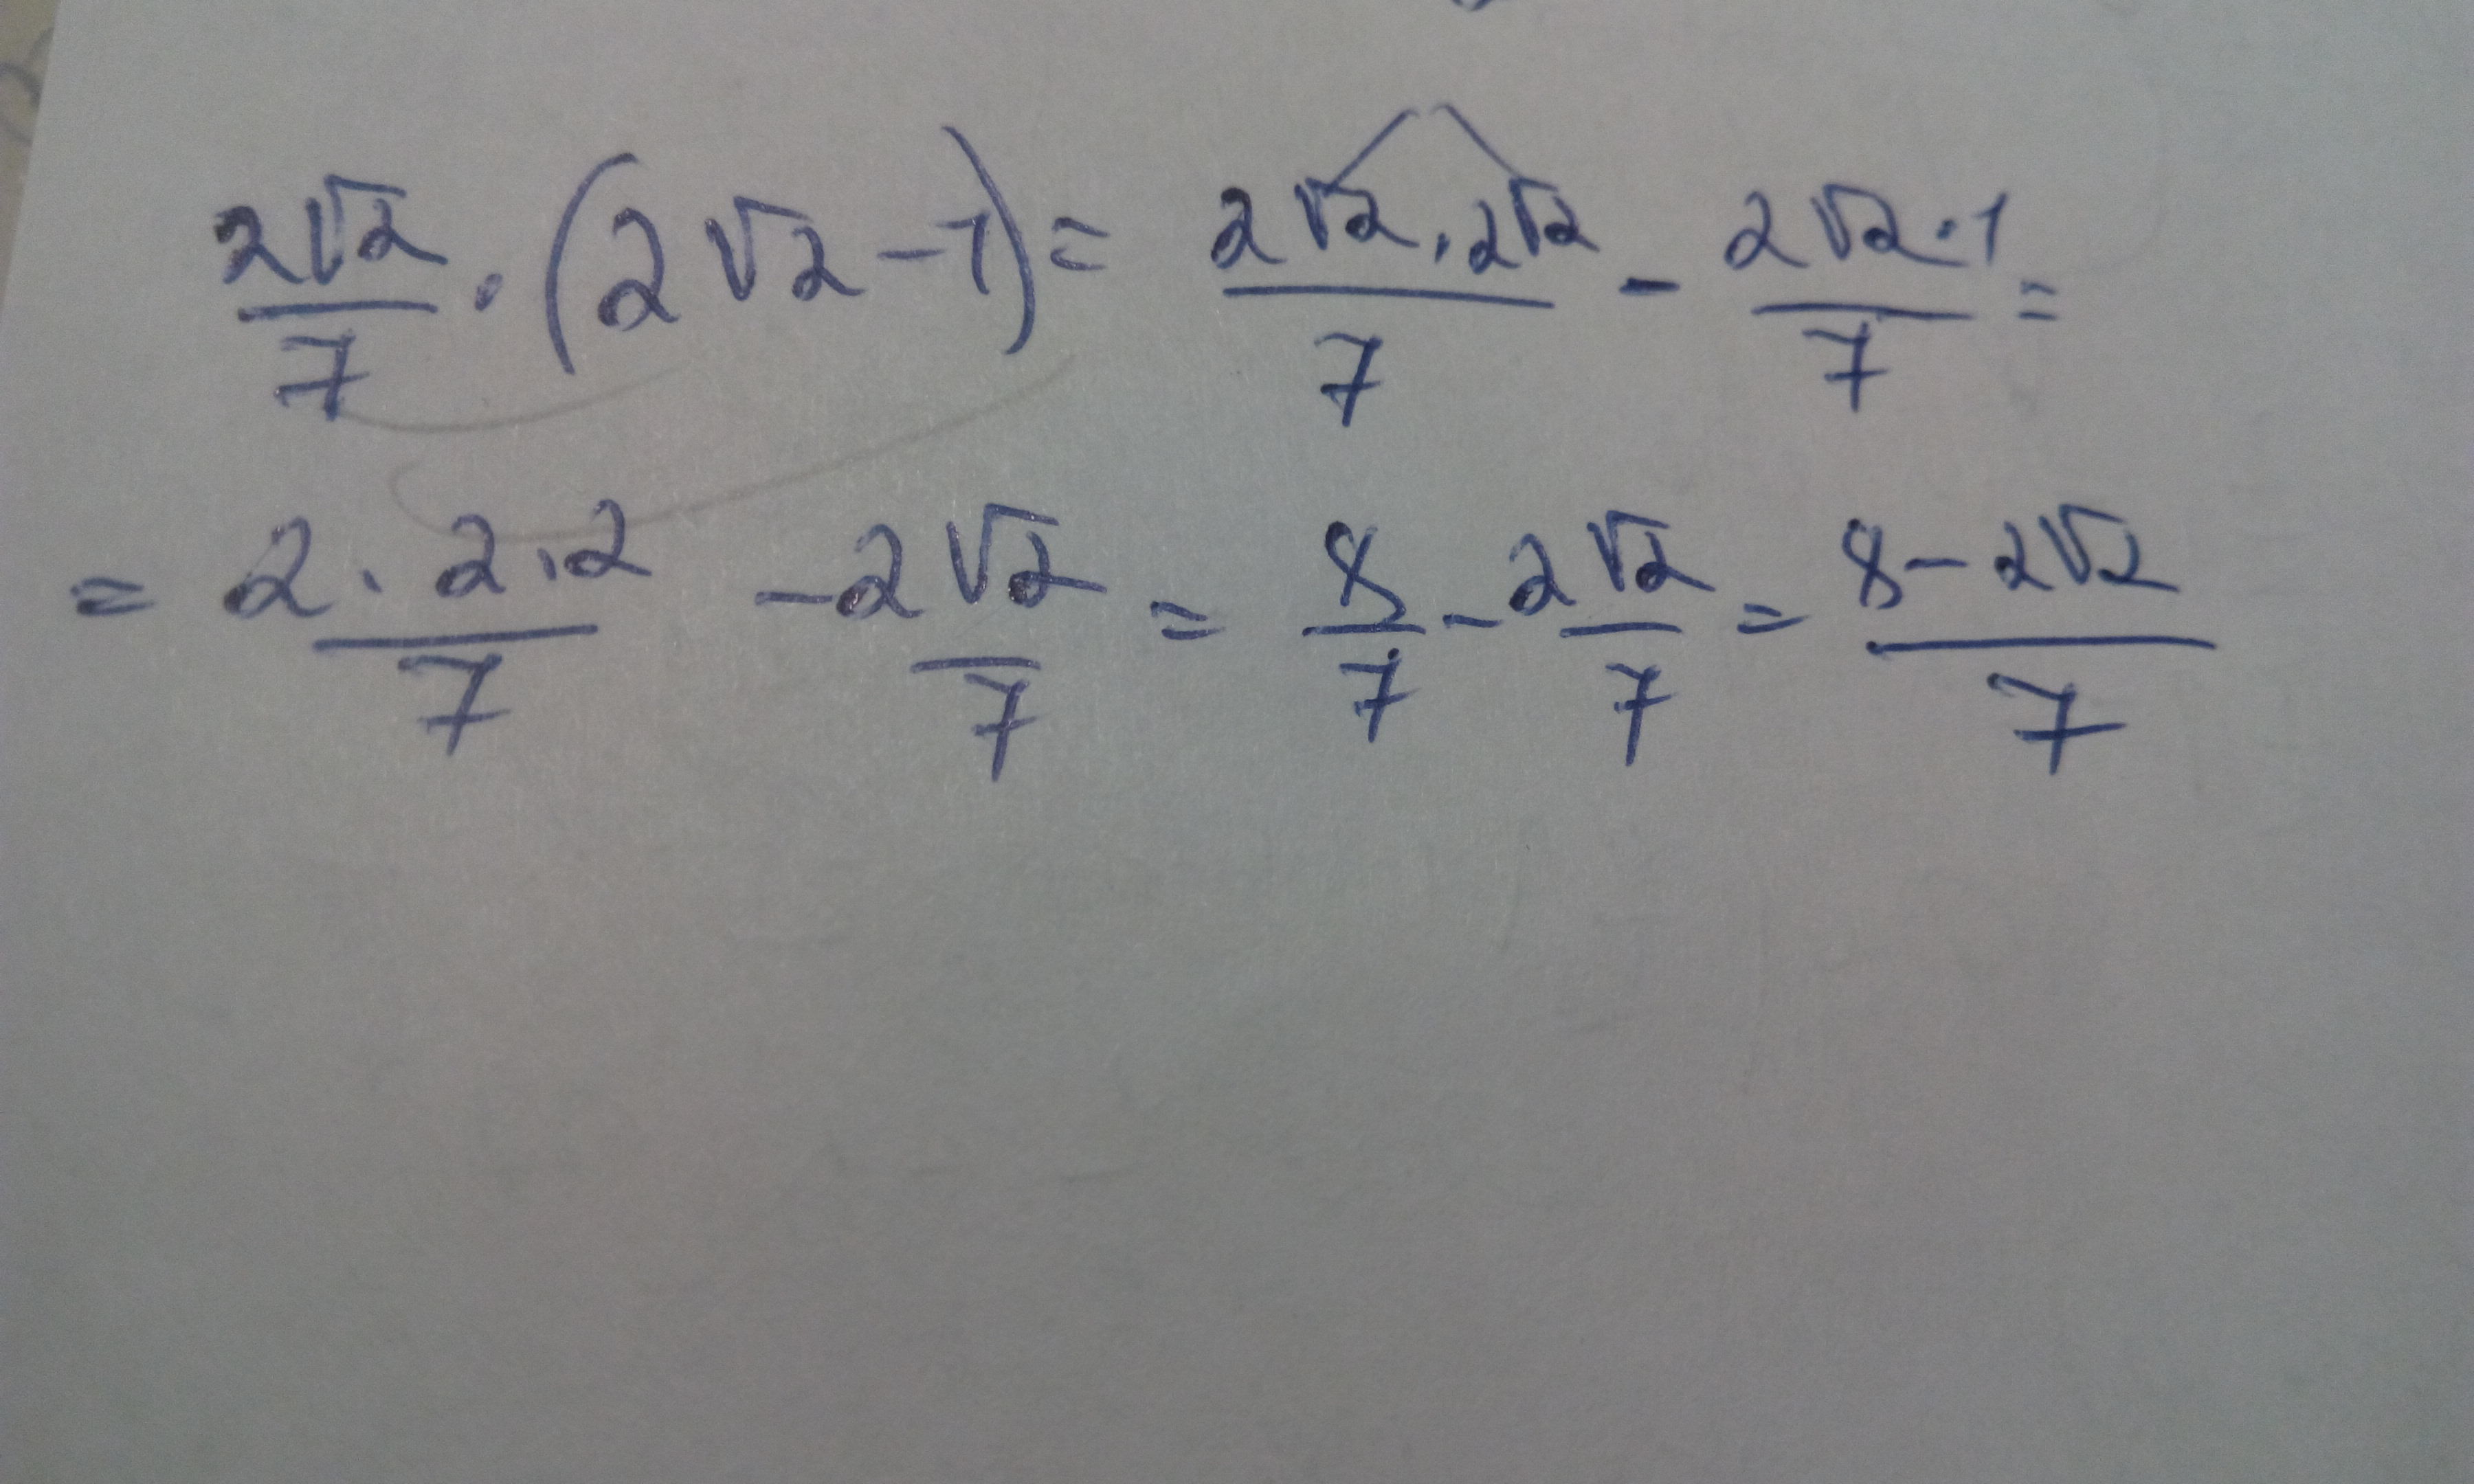 2√2/7 · (2√2 - 1) = 2√2 · 2√2/7 - 2√2 · 1/7 =
= 2 · 2 · 2/7 - 2√2/7 = 8/7 - 2√2/7 = 8 - 2√2/7